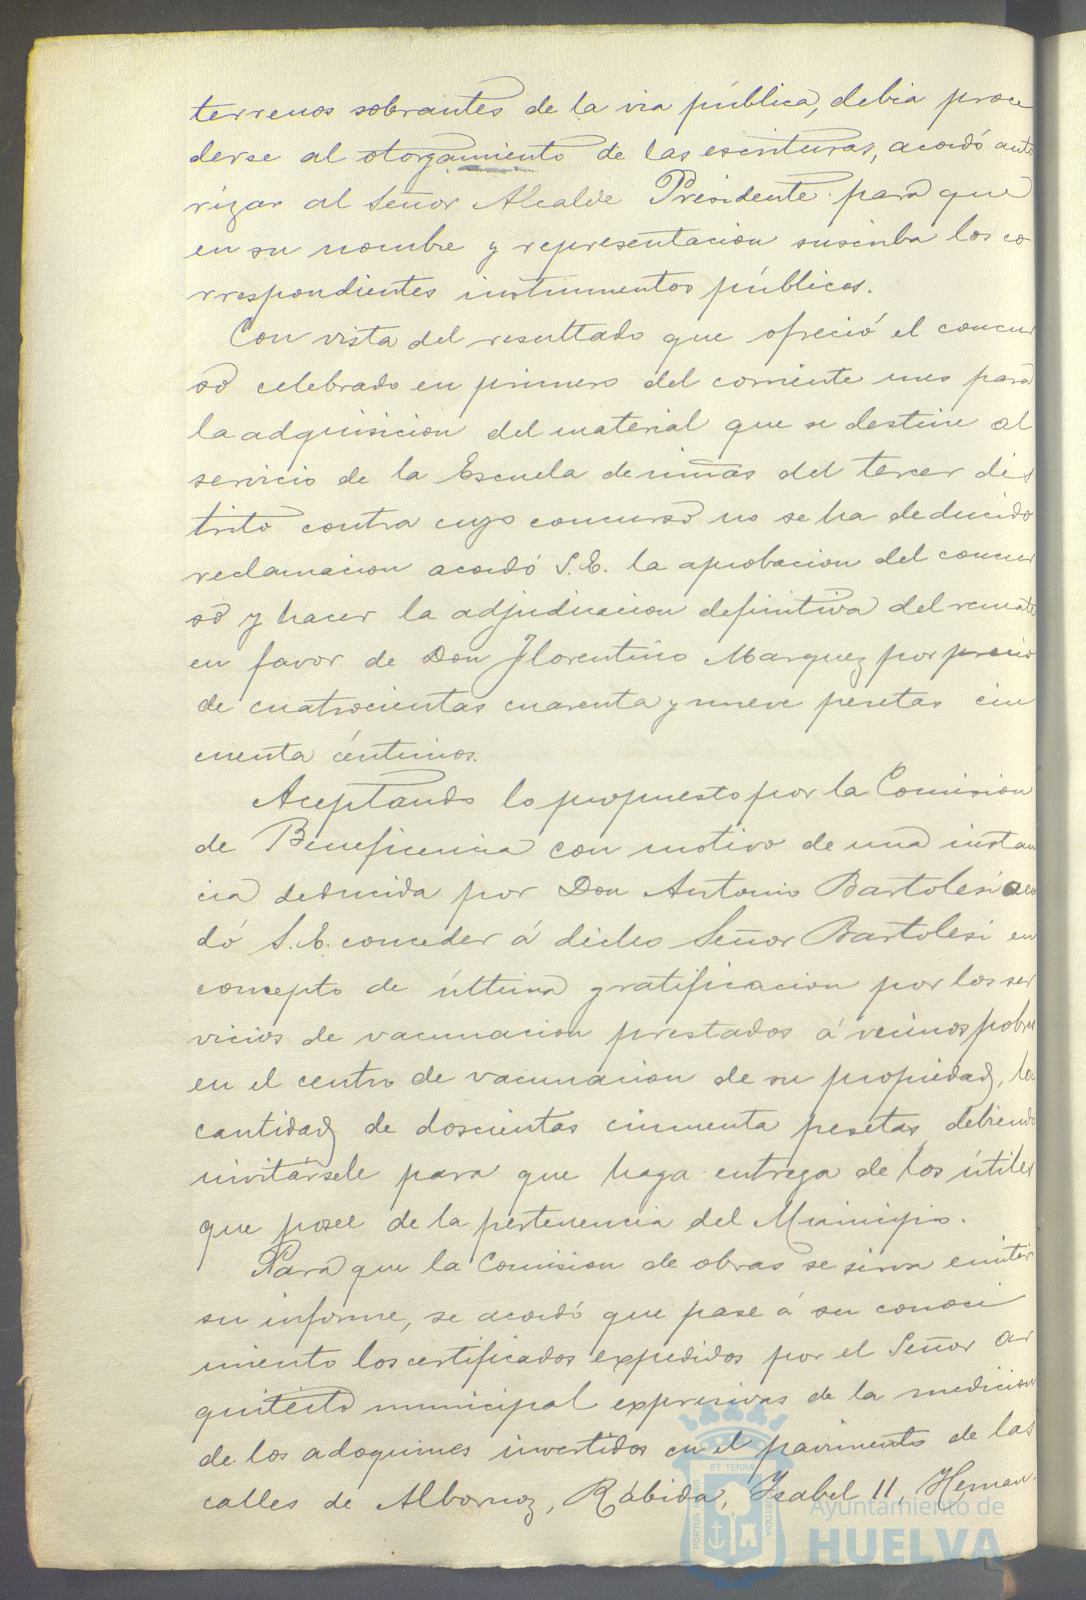 terrenos sobrantes de la via pública, debia proce
derse al otorgamiento de las escrituras, acordó auto
rizar al Señor Alcalde Presidente para que
en su nombre y representacion suscriba los co
rrespondientes instrumentos públicos.
Con vista del resultado que ofreció el concur
so celebrado en primero del corriente mes para
la adquisicion del material que se destine al
servicio de la Escuela de niñas del tercer dis
trito contra cuyo concurso no se ha deducido
reclamacion acordó S.E. la aprobacion del concur
so y hacer la adjudicacion definitiva del remate
en favor de Don Florentino Marquez por precio
de cuatrocientas cuarenta y nueve pesetas cin
cuenta céntimos.
Aceptando lo propuesto por la Comision
de Beneficencia con motivo de una instan
cia deducida por Don Antonio Bartolesi acor
dó S.E. conceder á dicho Señor Bartolesi en
concepto de última gratificacion por los ser
vicios de vacunacion prestados á vecinos pobres
en el centro de vacunacion de su propiedad, la
cantidad de doscientas cincuenta pesetas debiendo
invitársele para que haga entrega de los útiles
que posee de la pertenencia del Municipio.
Para que la Comision de obras se sirva emitir
su informe, se acordó que pase á su conoci
miento los certificados expedidos por el Señor Ar
quitecto municipal expresivas de la medicion
de los adoquines invertidos en el pavimento de las
calles de Albornoz, Rábida, Isabel II, Hernan
ET TERRA
PORTUS MARIS
CUSTODIA
Ayuntamiento de
HUELVA